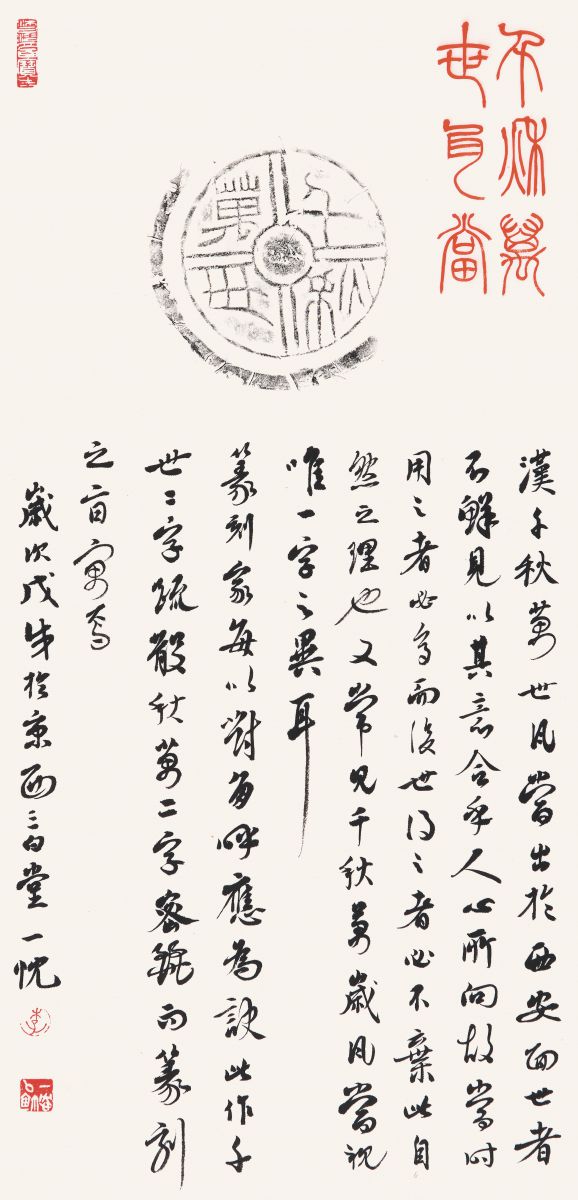 千秋萬
世瓦當
千秋萬世
漢千秋萬世瓦當出於西安面世者
不鮮見以其意合乎人心所向故當時
用之者必多而後世得之者必不棄此自
然之理也又常見千秋萬歲瓦當視
唯一字之異耳
篆刻家每以對角呼應為訣此作千
世二字疏散秋萬二字密而篆刻
之旨寓焉
歲次戊戌於京西三白堂一忱
李